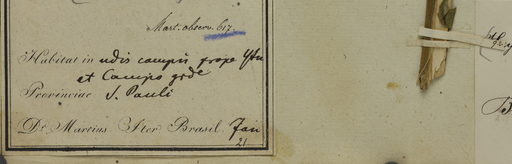 Mart. observ. 617.
Habitat in udis campis prope Ytu
et Campo grde
Provinciae S. Pauli
Dr. Martius. Iter Brasil. Jan
21